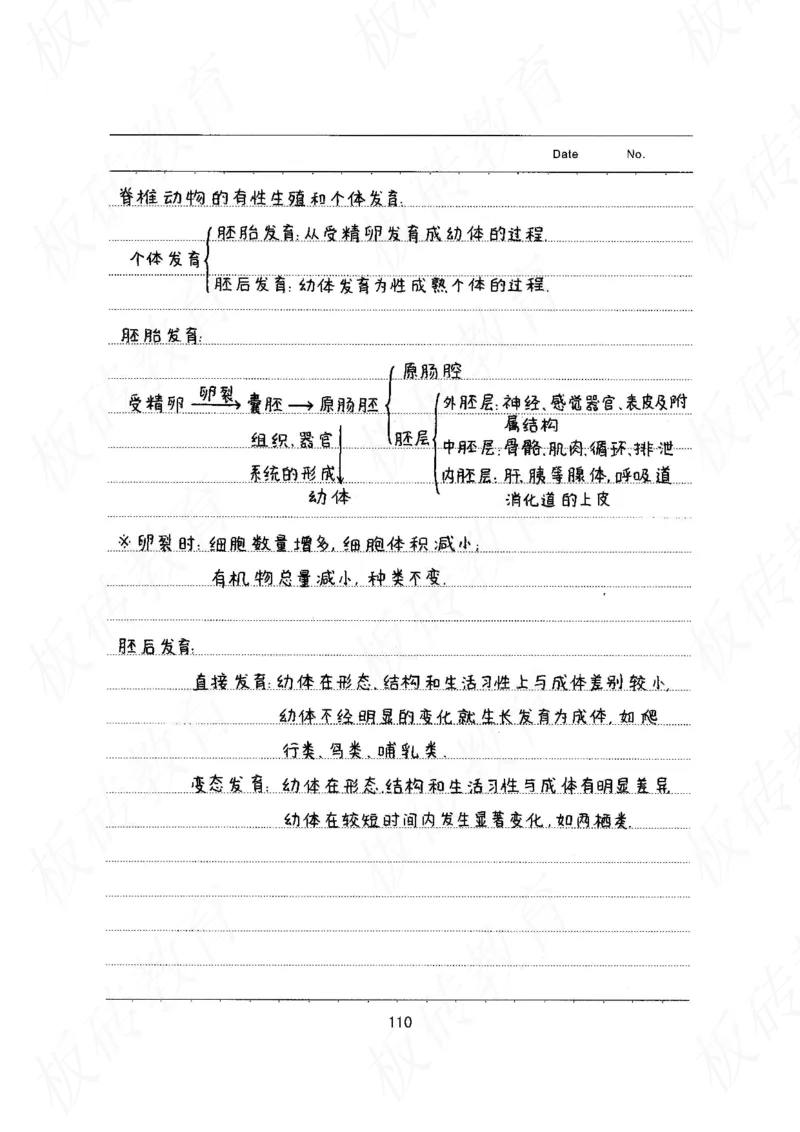 Date No.
脊椎动物的有性生殖和个体发育.
胚胎发育:从受精卵发育成幼体的过程.
个体发育
胚后发育:幼体发育为性成熟个体的过程.
胚胎发育:
原肠腔
受精卵 卵裂→ 囊胚→原肠胚
外胚层:神经、感觉器官、表皮及附
属结构
组织、器官 胚层
中胚层:骨骼、肌肉、循环、排泄
系统的形成
内胚层:肝、胰等腺体,呼吸道
幼体
消化道的上皮
※卵裂时:细胞数量增多,细胞体积减小;
有机物总量减小,种类不变.
胚后发育:
直接发育:幼体在形态、结构和生活习性上与成体差别较小,
幼体不经明显的变化就生长发育为成体,如爬
行类、鸟类、哺乳类.
变态发育:幼体在形态、结构和生活习性与成体有明显差异,
幼体在较短时间内发生显著变化,如两栖类.
110
板砖教育